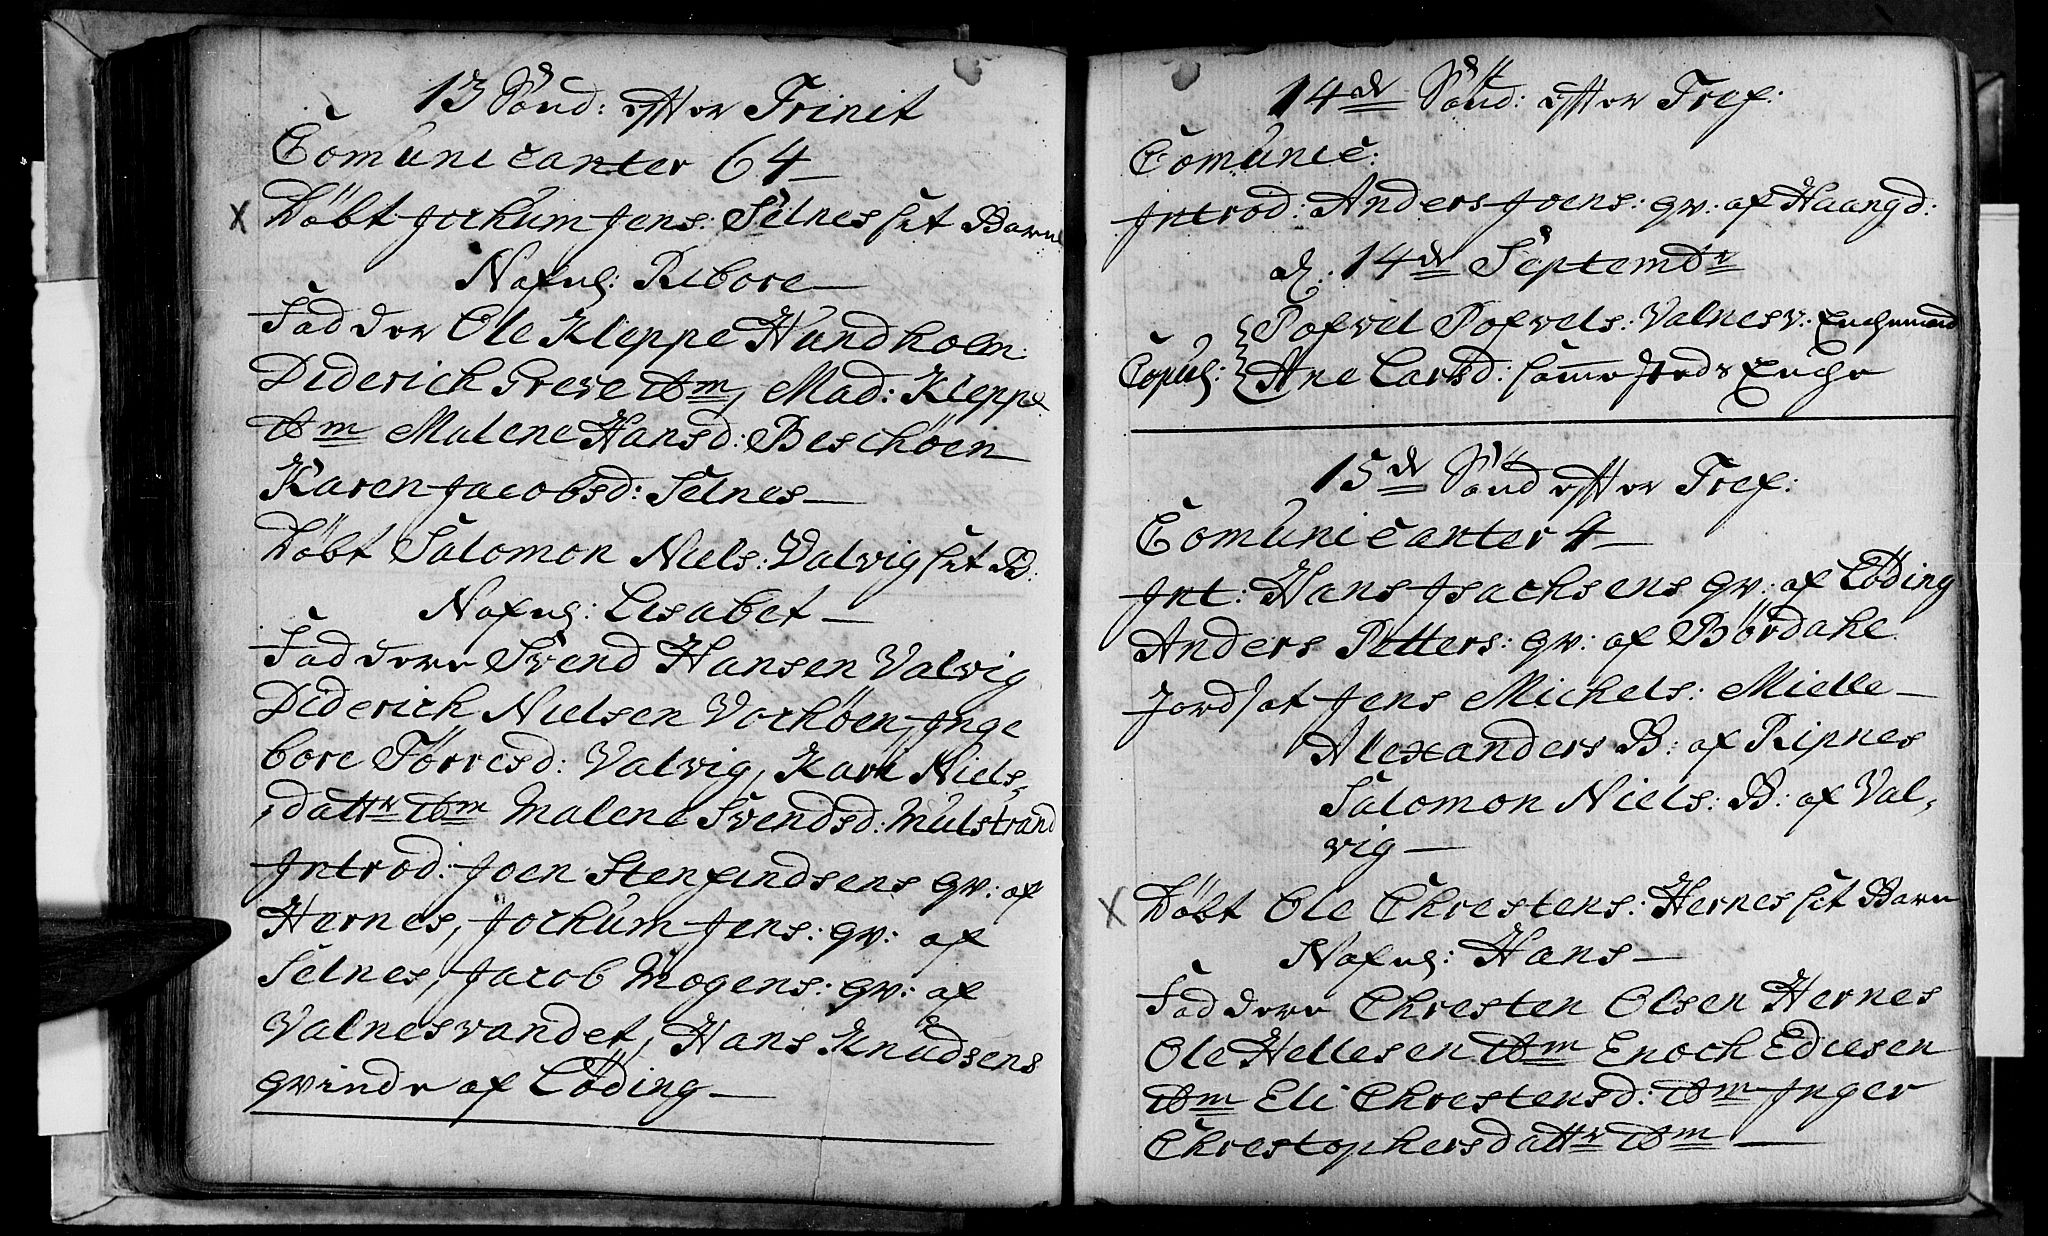 13 Sönd: effter Trinit
Comunicanter 64 —
X Döbt Jochum Jens: Selnes sit Barn
Nafnl: Rebore —
Fadder Ole Kleppe Hundholm
Diderich Greve ibm, Mad: Kleppe
ibm Malene Hansd: Beschöen
Karen Jacobsd: Selnes —
Döbt Salomon Niels: Valvig sit B:
Nafnl: Lisabet —
Faddere Svend Hansen Valvig
Diderich Nielsen Vochöen, Inge
bore Törresd: Valvig, Kari Niels,
,dattr ibm Malene Svendsd: Mulstrand
Introd: Joen Stenfindsens qv: af
Hernes, Jochum Jens: qv: af
Selnes, Jacob Mogens: qv: af
Valnesvandet, Hans Knudsens
qvinde af Löding —
14de Sönd: effter Tref:
Comunic:
Introd: Anders Joens: qv: af Haagd:
d. 14de Septembr
Pofvel Pofvels: Valnesv: Enchemand
Copul: Ane Larsd: samesteds Enche
15de Sönd effter Tref:
Comunicanter 4 —
Int: Hans Isachsens qv: af Löding
Anders Petters: qv: af Bördahe
Jordsat Jens Michels: Mielle —
Alexanders B: af Ripnes
Salomon Niels: B: af Val,
vig —
X Döbt Ole Chrestens: Hernes sit Barn
Nafnl: Hans —
Faddere Chresten Olsen Hernes
Ole Hellesen ibm Enoch Ediesen
ibm Eli Chrestensd: ibm Inger
Chrestophersdattr ibm —